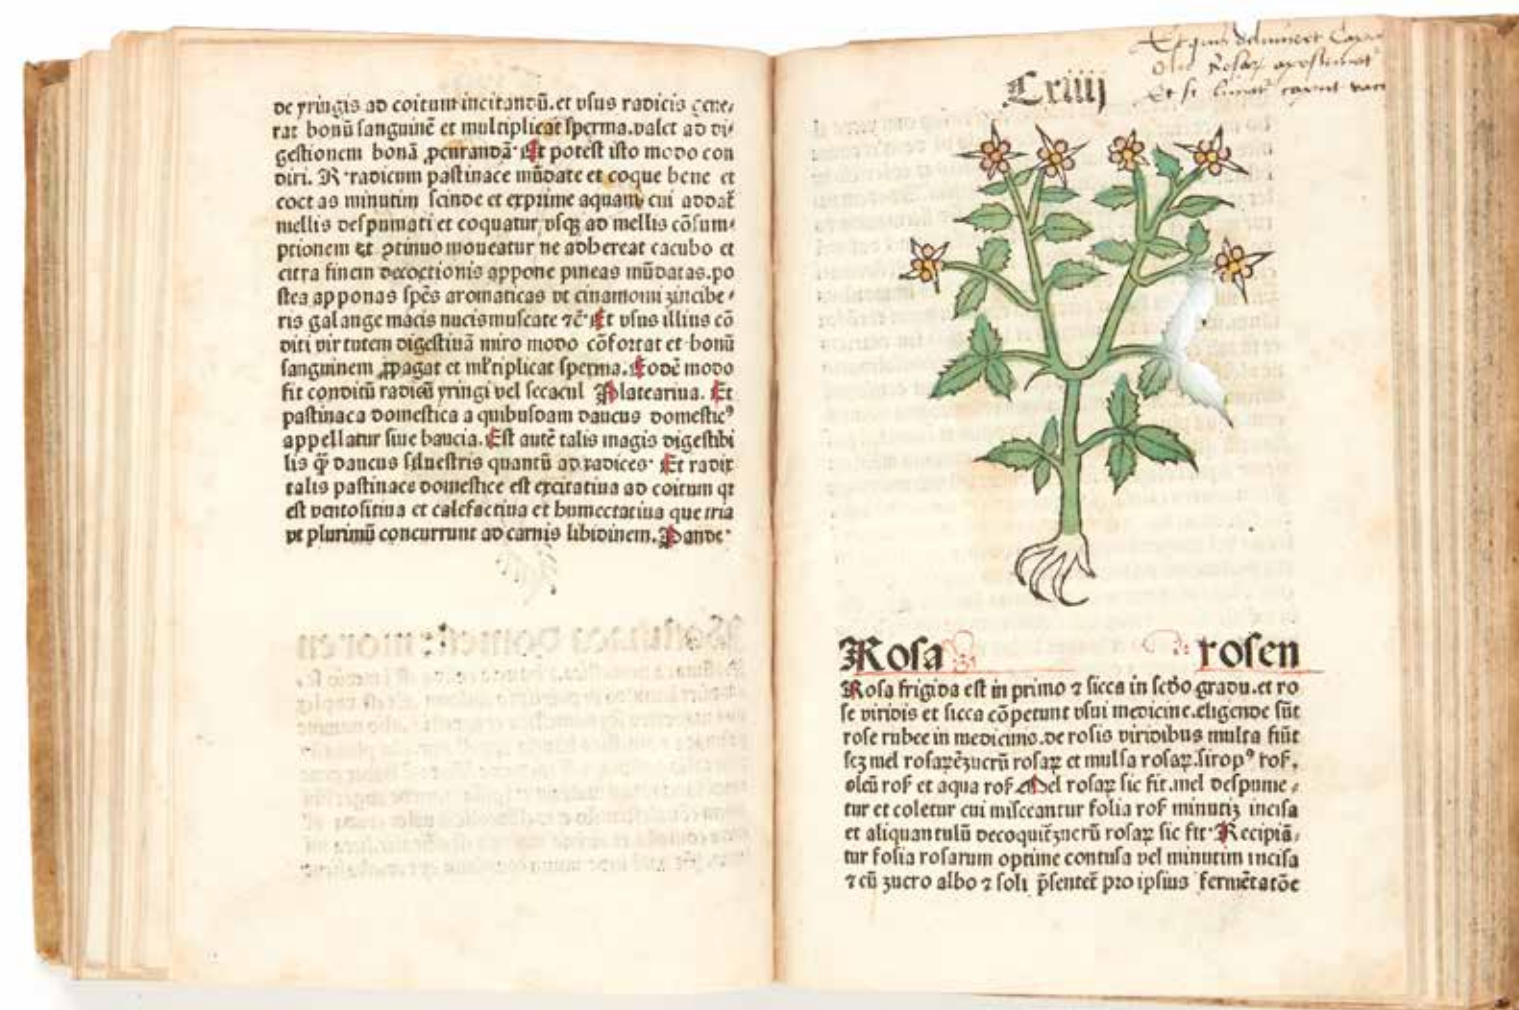 de yringis ad coitum incitandū. et vsus radicis gene⸗
rat bonū sanguinē et multiplicat sperma. valet ad di⸗
gestionem bonā ꝓcurandā. Et potest isto modo con
diri. R. radicum pastinace mūdate et coque bene et
coctas minutim scinde et exprime aquam cui addat᷑
mellis despumati et coquatur vsqꝫ ad mellis cōsum⸗
ptionem et ꝯtinuo moueatur ne adhereat cacubo et
citra finem decoctionis appone pineas mūdatas. po
stea apponas spēs aromaticas vt cinamomi zinzibe⸗
ris galange macis nucismuscate ⁊c̄. Et vsus illius cō
diti virtutem digestiuā miro modo cōfortat et bonū
sanguinem ꝓpagat et mĺtiplicat sperma. Eodē modo
fit conditū radicū yringi vel secacul Platearius. Et
pastinaca domestica a quibusdam daucus domesticꝰ
appellatur siue baucia. Est autē talis magis digestibi
lis ꝙ̄ daucus siluestris quantū ad radices. Et radix
talis pastinace domestice est excitatiua ad coitum qr
est ventositiua et calefactiua et humectatiua que tria
vt plurimū concurrunt ad carnis libidinem. Pande⸗
Et quis
Oleo Rosaꝝ
Et si caput
Cxiiij
Rosa rosen
Rosa frigida est in primo ⁊ sicca in scd̄o gradu. et ro
se viridis et sicca cōpetunt vsui medicine. eligende sūt
rose rubee in medicinis. de rosis viridibus multa fiūt
scꝫ mel rosaꝝ zucrū rosaꝝ et mulsa rosaꝝ. siropꝰ ros̄.
oleū ros̄ et aqua ros̄ Mel rosaꝝ sic fit. mel despume⸗
tur et coletur cui misceantur folia ros̄ minutiꝫ incisa
et aliquantulū decoquit᷑ zucrū rosaꝝ sic fit. Recipiā⸗
tur folia rosarum optime contusa vel minutim incisa
⁊ cū zucro albo ⁊ soli p̄sentet᷑ pro ipsius fermētatōe